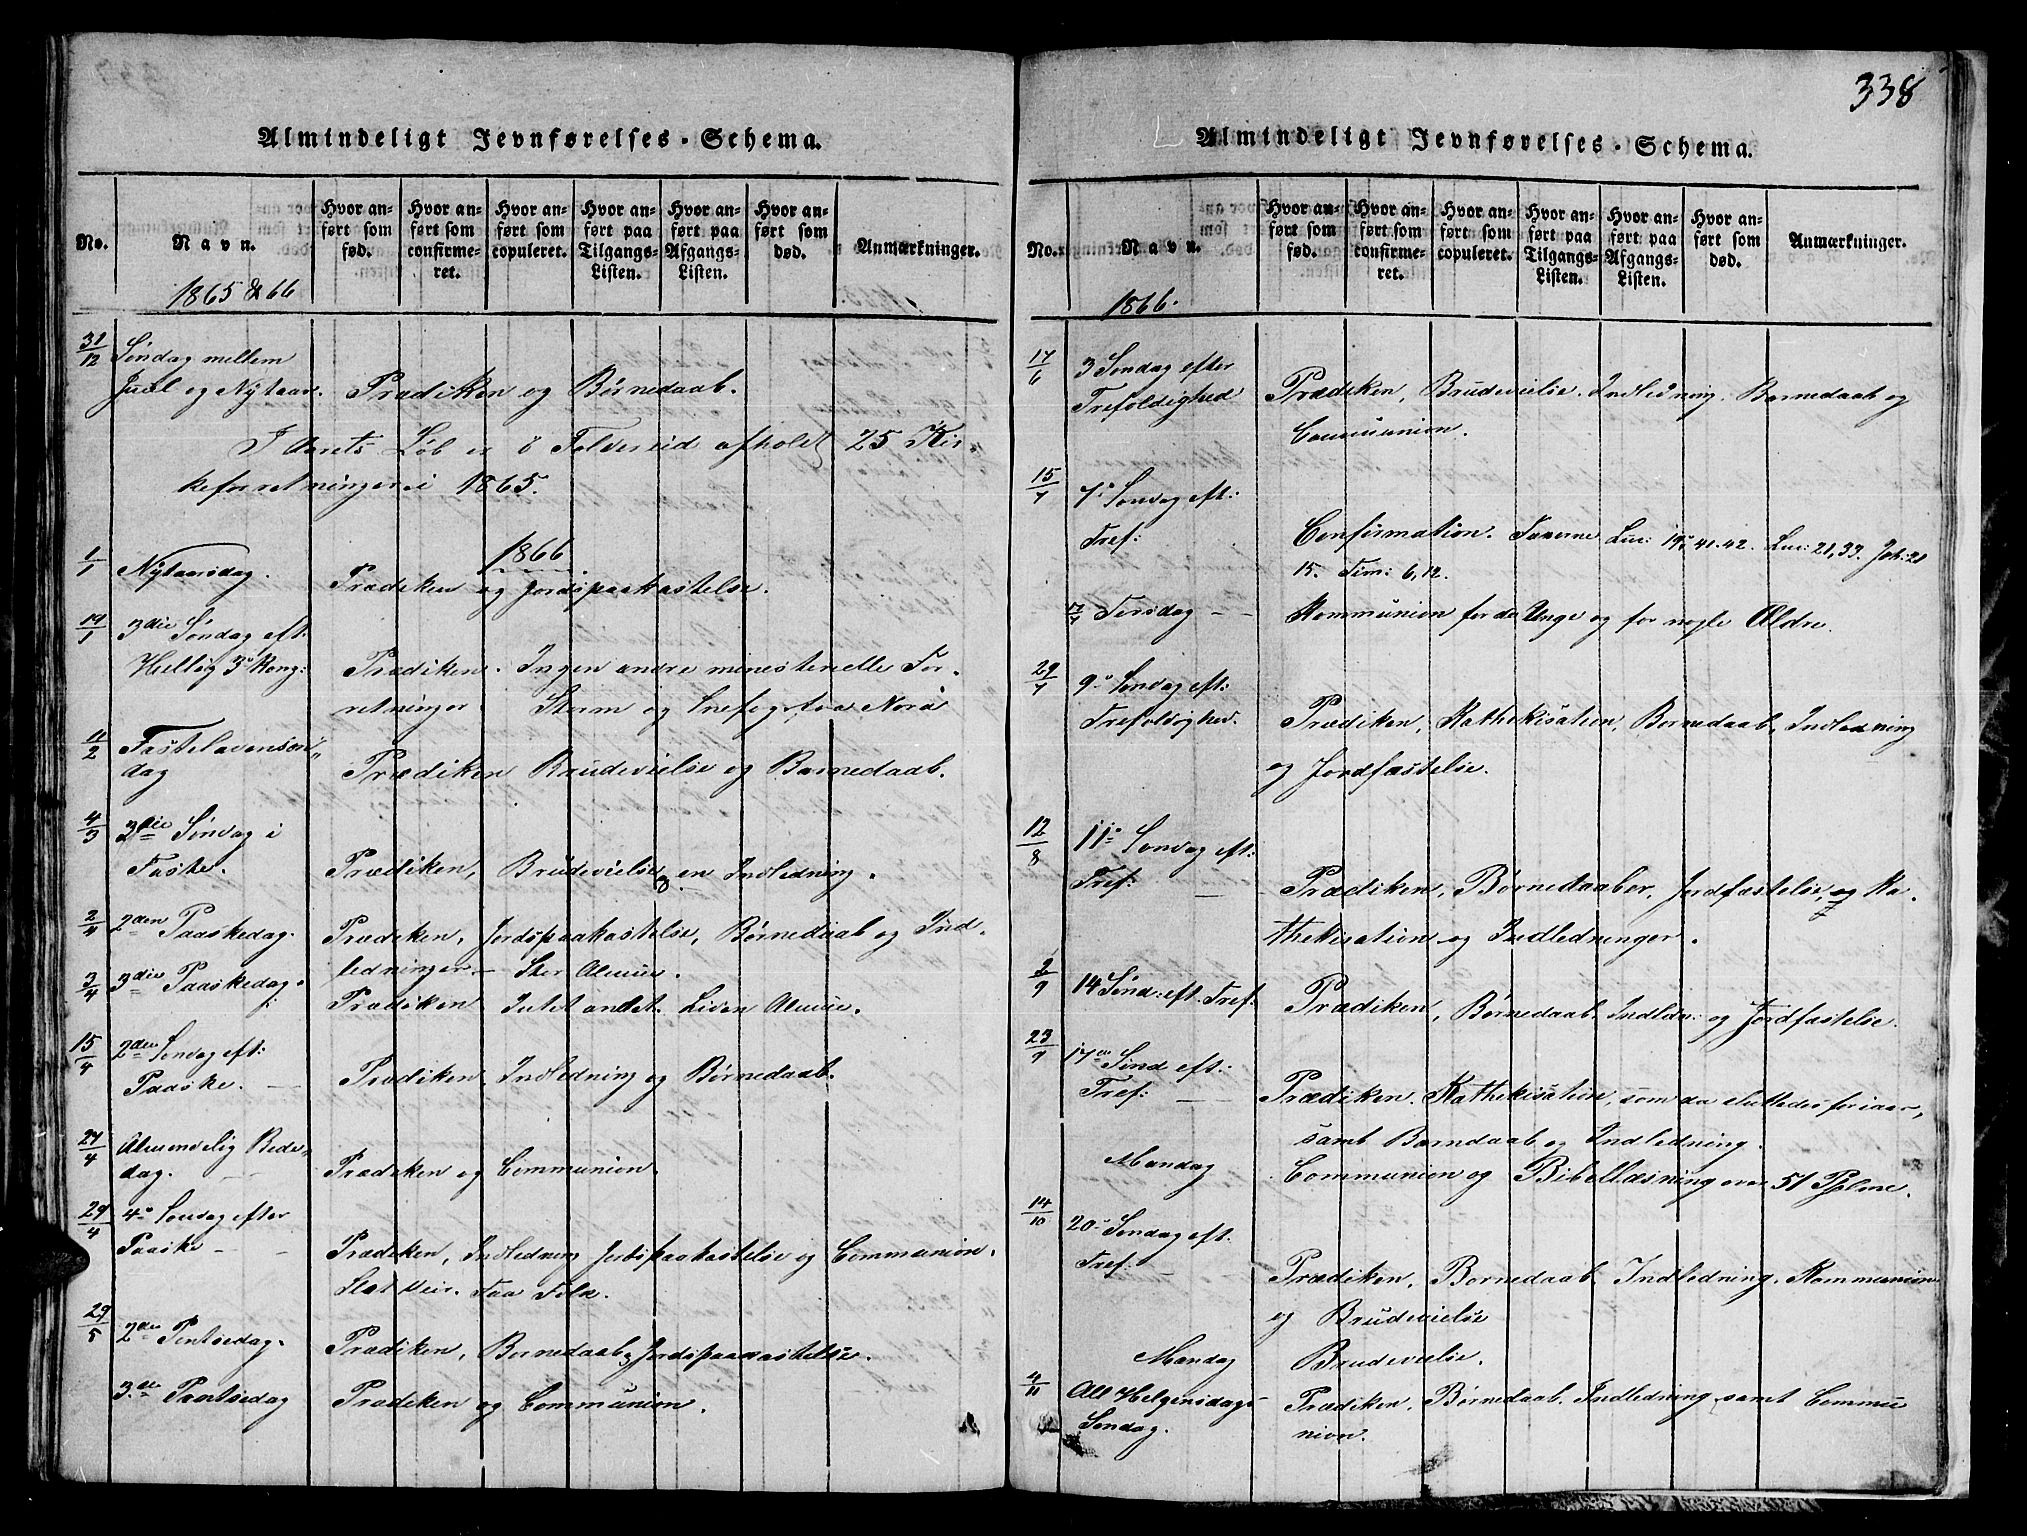 338
Almindeligt Jevnførelses-Schema.
No.
Navn.
Hvor anført som født.
Hvor anført som confirmeret.
Hvor anført som copuleret.
Hvor anført paa Tilgangs-Listen.
Hvor anført paa Afgangs-Listen.
Hvor anført som død.
Anmærkninger.
1865 & 66
31/12 Søndag mellem
Juul og Nytaar. Prædiken og Børnedaab.
I Aarets Løb er i Foldereid afholdt 25 Kir-
keforretninger i 1865.
1866
1/1 Nytaarsdag. Prædiken og Jordspaakastelse.
3die Søndag eft.
Hellig 3 Kong: Prædiken. Ingen andre ministerielle For-
retninger. Storm og Snefog fra Nord
11/2 Fastelavenssøn-
dag Prædiken Brudevielse og Børnedaab.
4/3 3die Søndag i
Faste. Prædiken, Brudevielse og en Indledning.
2/4 2den Paaskedag. Prædiken, Jordspaakastelse, Børnedaab og Ind-
ledninger. Stor Almue.
3/4 3die Paaskedag. Prædiken Intet andet. Liden Almue.
15/4 2den Søndag eft:
Paaske. Prædiken, Indledning og Børnedaab.
27/4 Almindelig Bede-
dag. Prædiken og Communion.
29/4 4de Søndag efter
Paaske Prædiken, Indledning Jordspaakastelse og Communion.
Slet Veir. Faa Folk.
2den Pintsedag. Prædiken, Børnedaab, Jordspaakastelse.
3die Pintsedag Prædiken og Communion.
Almindeligt Jevnførelses-Schema.
No.
Navn.
Hvor anført som født.
Hvor anført som confirmeret.
Hvor anført som copuleret.
Hvor anført paa Tilgangs-Listen.
Hvor anført paa Afgangs-Listen.
Hvor anført som død.
Anmærkninger.
1866.
17/6 3 Søndag efter
Trefoldighed Prædiken, Brudevielse, Indledning, Børnedaab og
Communion.
15/7 7de Søndag eft:
Tref: Confirmation. Texterne Luc: 19, 41.42. Luc: 21,33. Joh: 21
15. Tim: 6,12.
Torsdag Kommunion for de Unge og for nogle Ældre.
29/7 9de Søndag eft:
Trefoldighed. Prædiken, Kathekisation, Børnedaab, Indledning
og Jordfæstelse.
12/8 11te Søndag eft:
Tref: Prædiken, Børnedaaber, Jordfæstelse, og Ka-
thekisation og Indledninger.
2/9 14 Sønd: eft. Tref: Prædiken, Børnedaab. Indledn: og Jordfæstelse.
23/9 17de Sønd eft:
Tref: Prædiken. Kathekisation, som da sluttedes for iaar,
samt Barndaab og Indledning.
Mandag Communion og Bibellæsning over 51 Psalme.
14/10 20de Søndag eft.
Tref: Prædiken, Børnedaab Indledning, Kommunion
og Brudevielse
Mandag Brudevielse.
4/11 All Helgensdags-
Søndag. Prædiken, Børnedaab. Indledning samt Commu
nion.